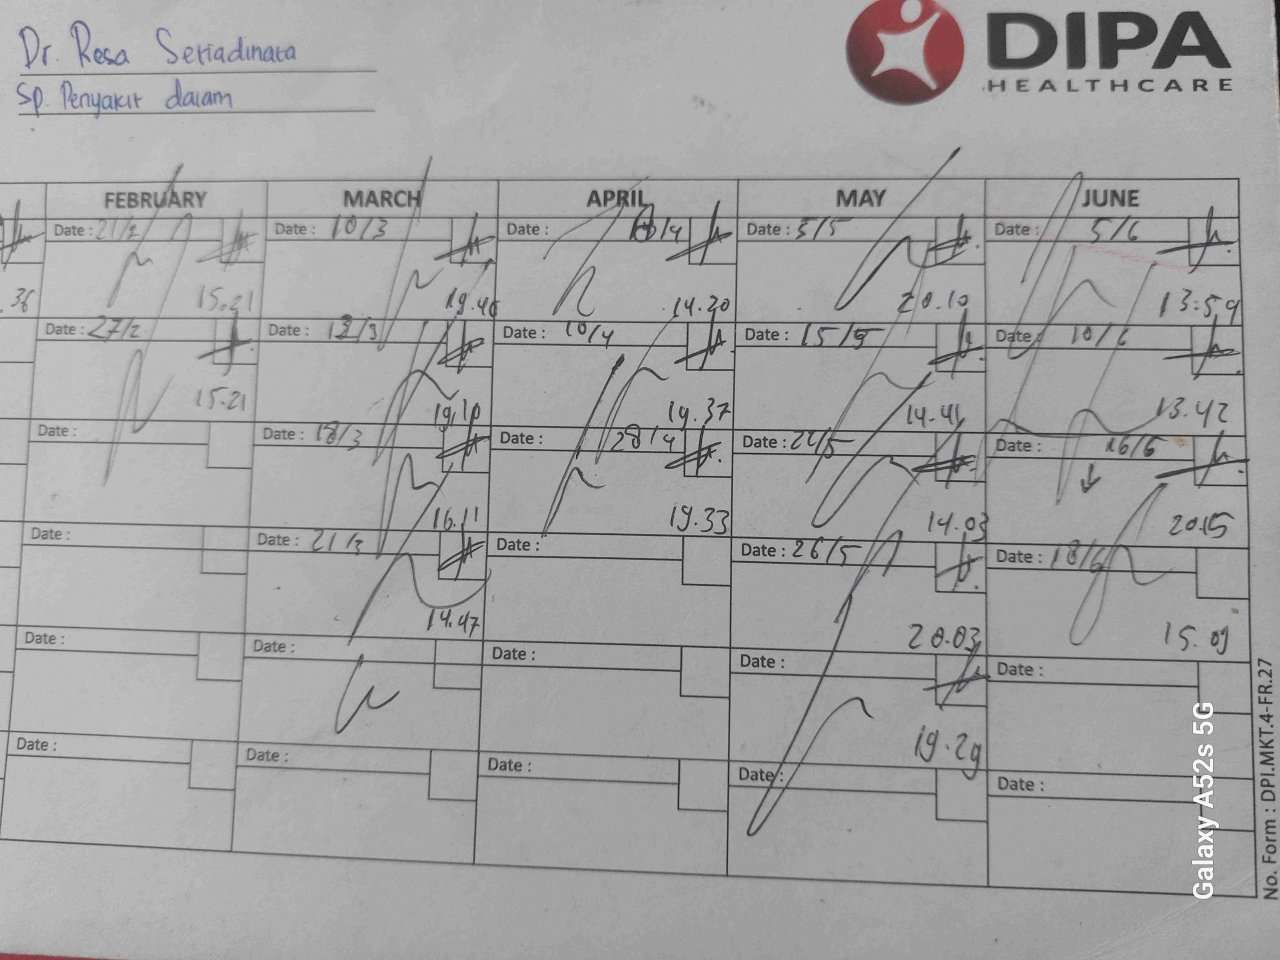 Dr. Rosa Setiadinata
Sp. Penyakit dalam
DIPA
HEALTHCARE
FEBRUARY MARCH APRIL MAY JUNE
Date : 21/2 Date : 10/3 Date : /4 Date : 5/5 Date : 5/6
36 15.21 19.46 14.20 20.10 13.59
Date : 27/2 Date : 12/3 Date : 10/4 Date : 15/5 Date : 10/6
15.21 19.10 19.37 14.41 13.42
Date : Date : 18/3 Date : 28/4 Date : 22/5 Date : 16/6
16.11 19.33 14.03 20.15
Date : Date : 21/3 Date : Date : 26/5 Date : 18/6
14.47 20.03 15.09
Date : Date : Date : Date : Date :
19.29
Date : Date : Date : Date : Date :
No. Form : DPI.MKT.4-FR.27
Galaxy A52s 5G